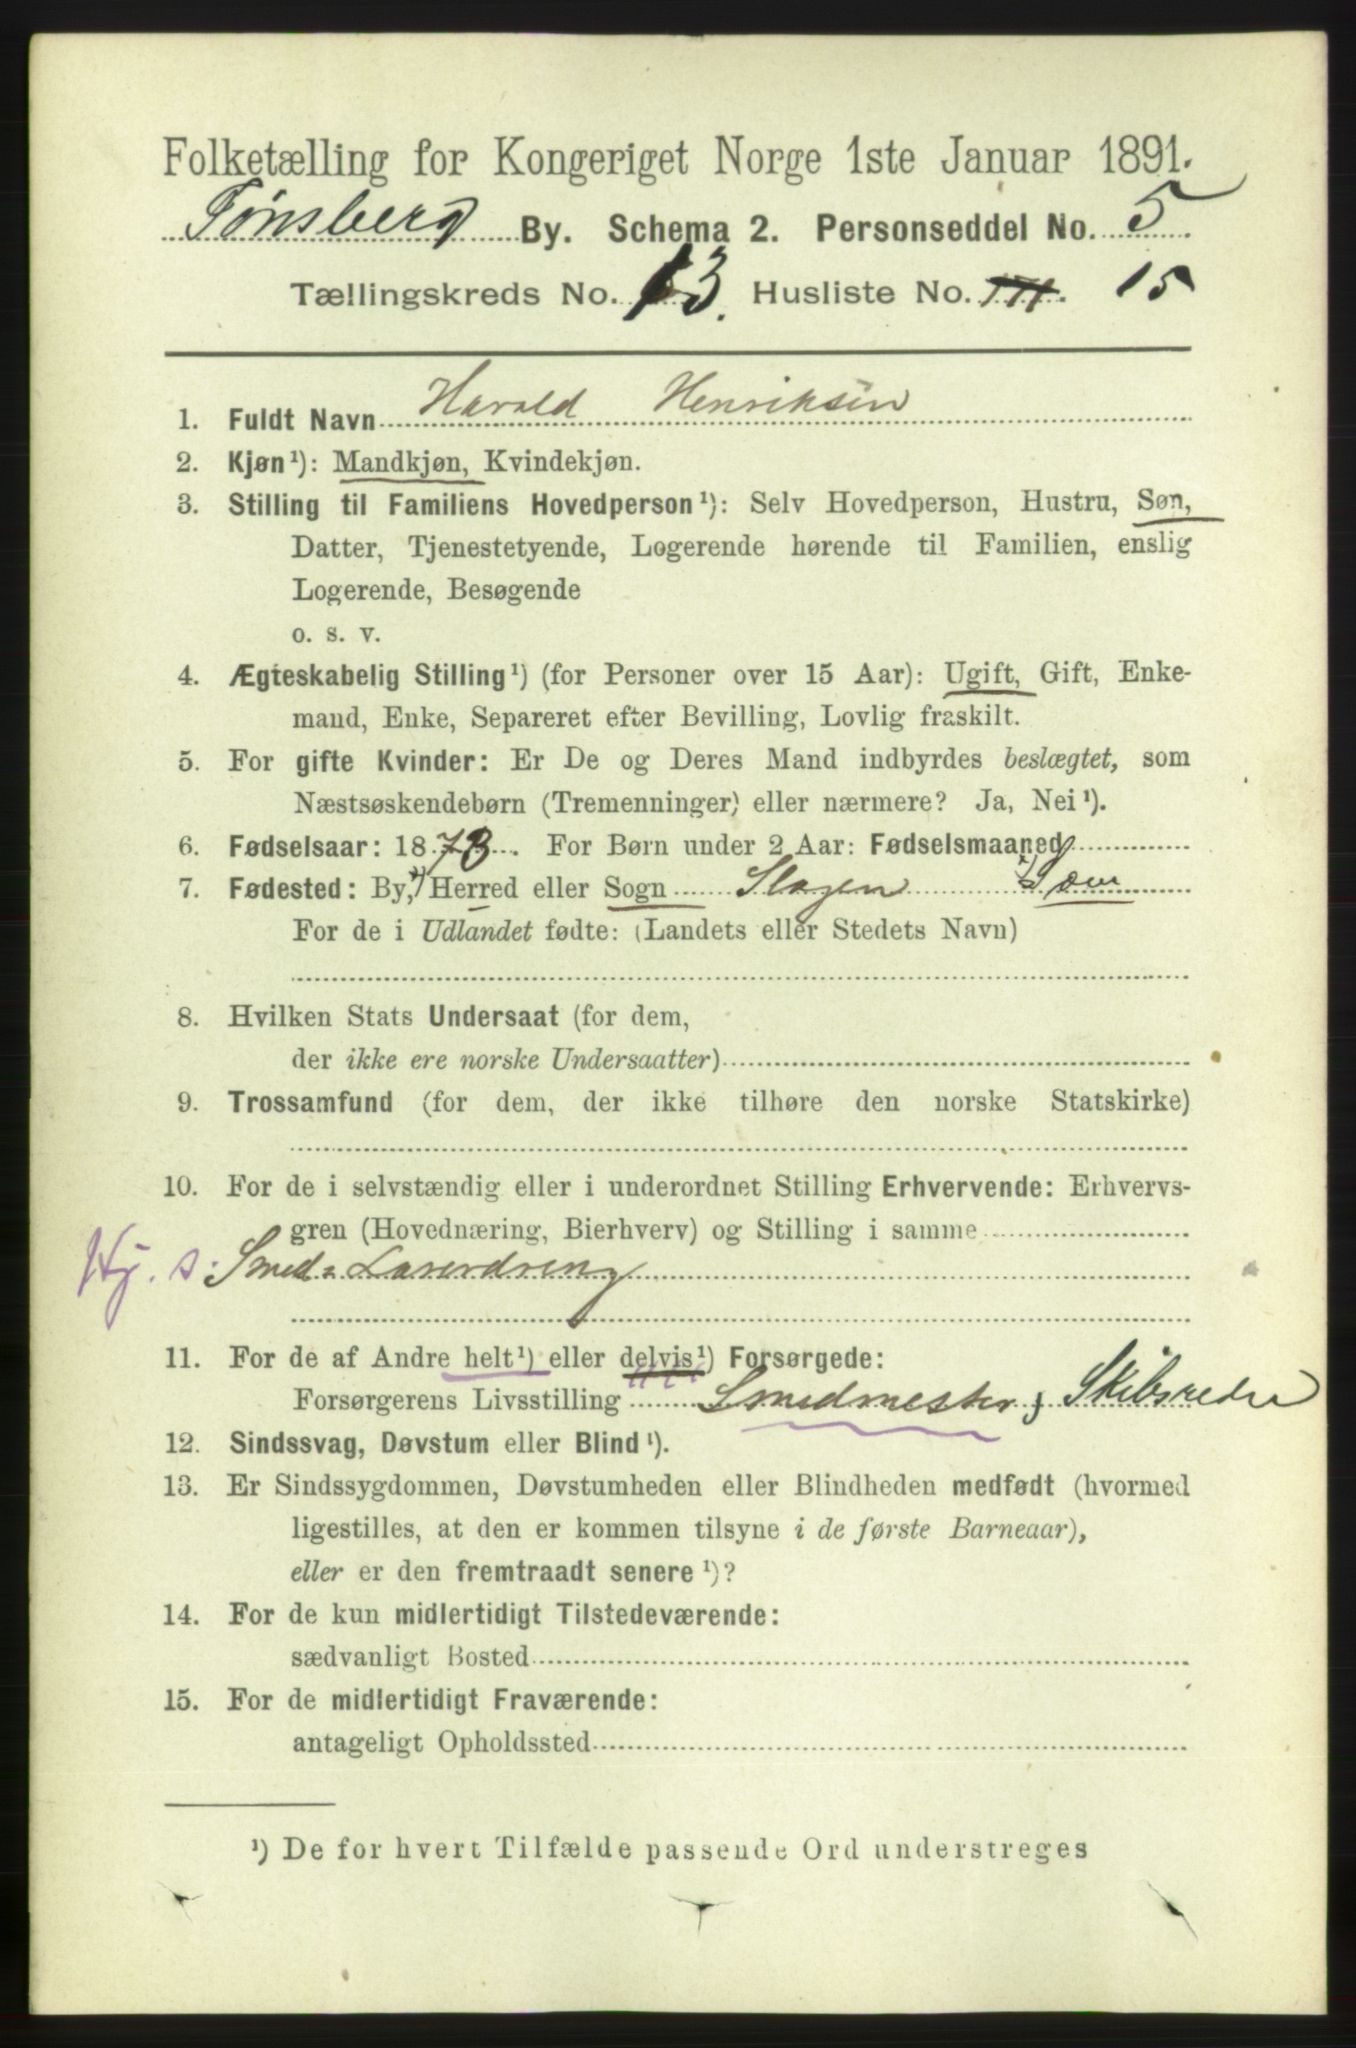 Folketælling for Kongeriget Norge 1ste Januar 1891.
Tønsberg By. Schema 2. Personseddel No. 5
Tællingskreds No. 13. Husliste No. III. 15
1. Fuldt Navn Harald Henriksen
2. Kjøn¹): Mandkjøn, Kvindekjøn.
3. Stilling til Familiens Hovedperson¹): Selv Hovedperson, Hustru, Søn,
Datter, Tjenestetyende, Logerende hørende til Familien, enslig
Logerende, Besøgende
o. s. v.
4. Ægteskabelig Stilling¹) (for Personer over 15 Aar): Ugift, Gift, Enke-
mand, Enke, Separeret efter Bevilling, Lovlig fraskilt.
5. For gifte Kvinder: Er De og Deres Mand indbyrdes beslægtet, som
Næstsøskendebørn (Tremenninger) eller nærmere? Ja, Nei¹).
6. Fødselsaar: 1873. For Børn under 2 Aar: Fødselsmaaned
7. Fødested: By, Herred eller Sogn Slagen Sæm
For de i Udlandet fødte: (Landets eller Stedets Navn)
8. Hvilken Stats Undersaat (for dem,
der ikke ere norske Undersaatter)
9. Trossamfund (for dem, der ikke tilhøre den norske Statskirke)
10. For de i selvstændig eller i underordnet Stilling Erhvervende: Erhvervs-
gren (Hovednæring, Bierhverv) og Stilling i samme
Hj. s. Smed = Læredreng
11. For de af Andre helt¹) eller delvis¹) Forsørgede:
Forsørgerens Livsstilling Smedmester, Skibsreder
12. Sindssvag, Døvstum eller Blind¹).
13. Er Sindssygdommen, Døvstumheden eller Blindheden medfødt (hvormed
ligestilles, at den er kommen tilsyne i de første Barneaar),
eller er den fremtraadt senere¹)?
14. For de kun midlertidigt Tilstedeværende:
sædvanligt Bosted
15. For de midlertidigt Fraværende:
antageligt Opholdssted
¹) De for hvert Tilfælde passende Ord understreges